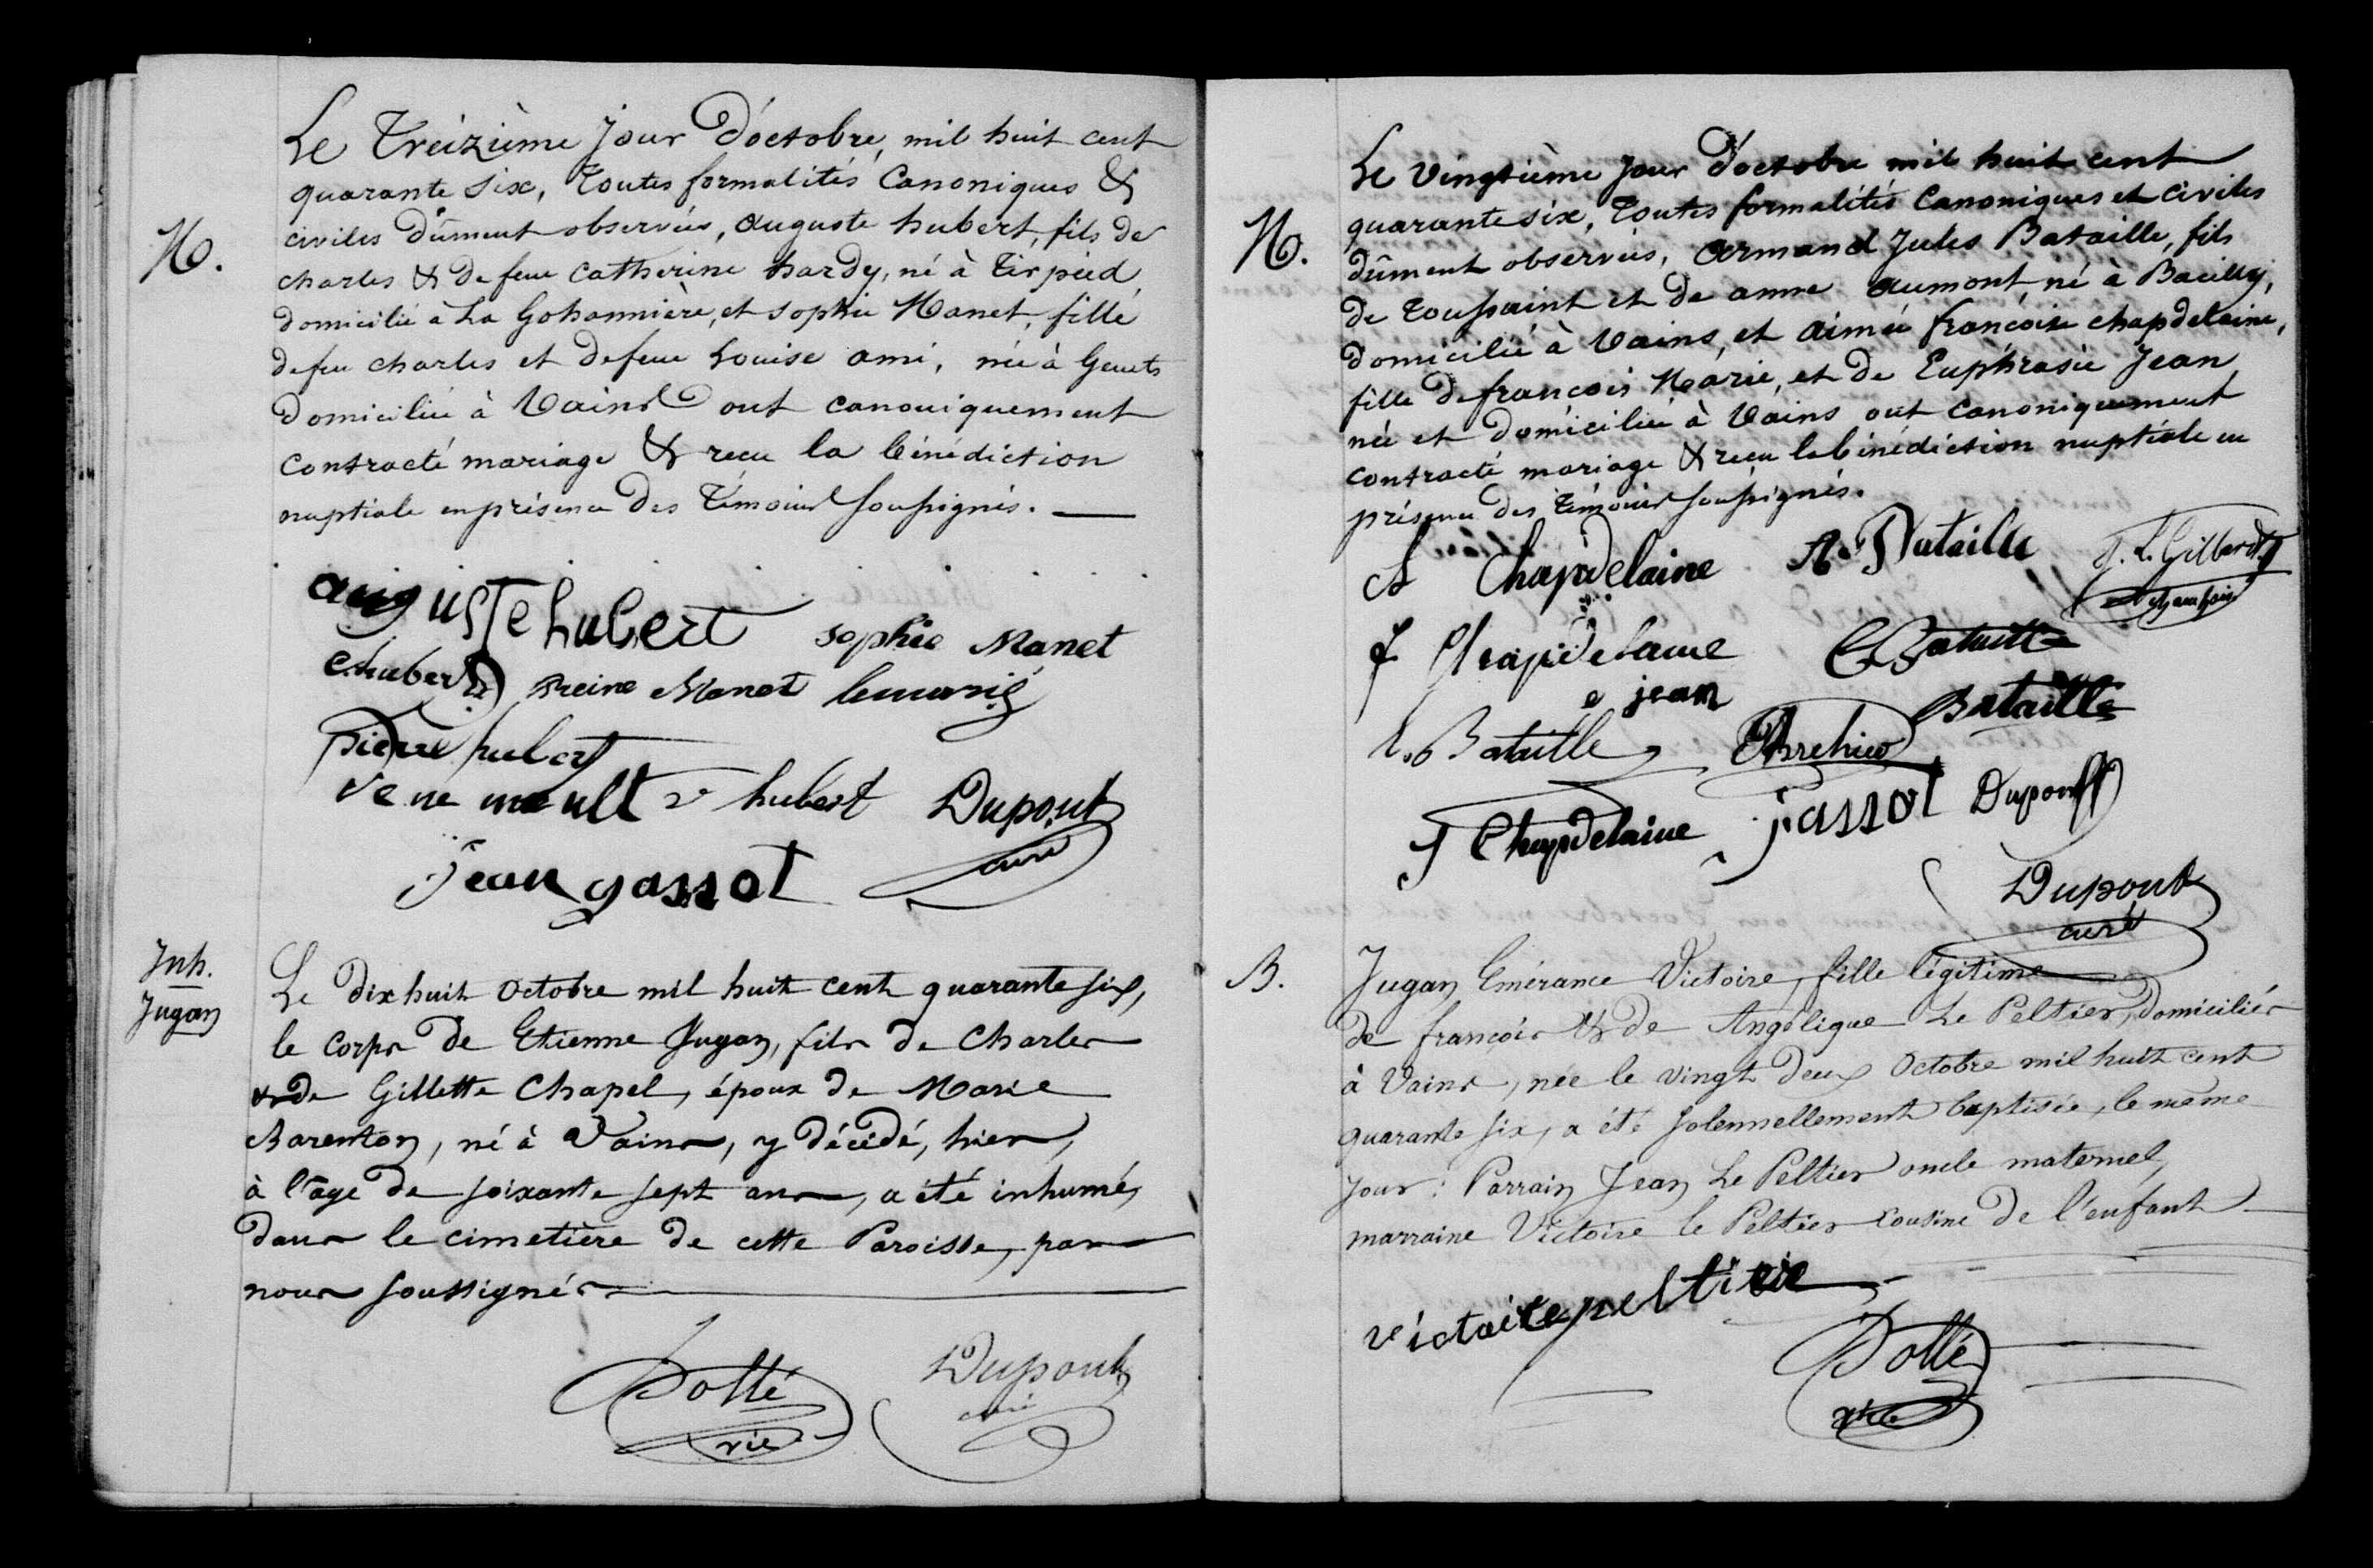 M.
Le Treizième jour d'octobre, mil huit cent
quarante six, Toutes formalités Canoniques &
civiles dûment observées, auguste hubert, fils de
charles & de feue Catherine hardy, né à Tirpied,
domicilié à La Gohannière, et sophie Manet, fille
de feu charles et de feue Louise ami, née à Genets
domiciliée à Vains ont canoniquement
contracté mariage & recu la bénédiction
nuptiale en présence des Témoins soussignés.
auguste hubert sophie Manet
C. hubert Reine Manet
pierre hubert
hubert Dupont
curé
jean gassot
Inh.
Jugan
Le dix huit Octobre mil huit cent quarante six,
le corps de Etienne Jugan, fils de Charles
& de Gillette Chapel, époux de Marie
Barenton, né à Vains, y décédé, hier,
à l'âge de soixante sept ans, a été inhumé,
dans le cimetière de cette Paroisse, par
nous soussignés
Dollé Dupont
vic curé
M.
Le vingtième jour d'octobre mil huit cent
quarante six, Toutes formalités Canoniques et civiles
dûment observées, Armand Jules Bataille, fils
de Toussaint et de anne aumont, né à Bacilly,
domicilié à Vains, et Aimée françoise chapdelaine,
fille de francois Marie, et de Euphrasie Jean
née et domiciliée à Vains ont canoniquement
contracté mariage & recu la bénédiction nuptiale en
présence des Témoins soussignés.
A Chapdelaine A Bataille
f Chapdelaine Bataille
e jean
Bataille Bataille
Chapdelaine jassot Dupont
Dupont
curé
B.
Jugan Emérance Victoire, fille légitime
de francois & de Angélique Le Peltier, domiciliés
à Vains, née le vingt deux Octobre mil huit cent
quarante six, a été solennellement baptisée, le même
jour : Parrain Jean Le Peltier oncle maternel,
marraine Victoire le Peltier cousine de l'enfant
victoire peltier
Dollé
vic